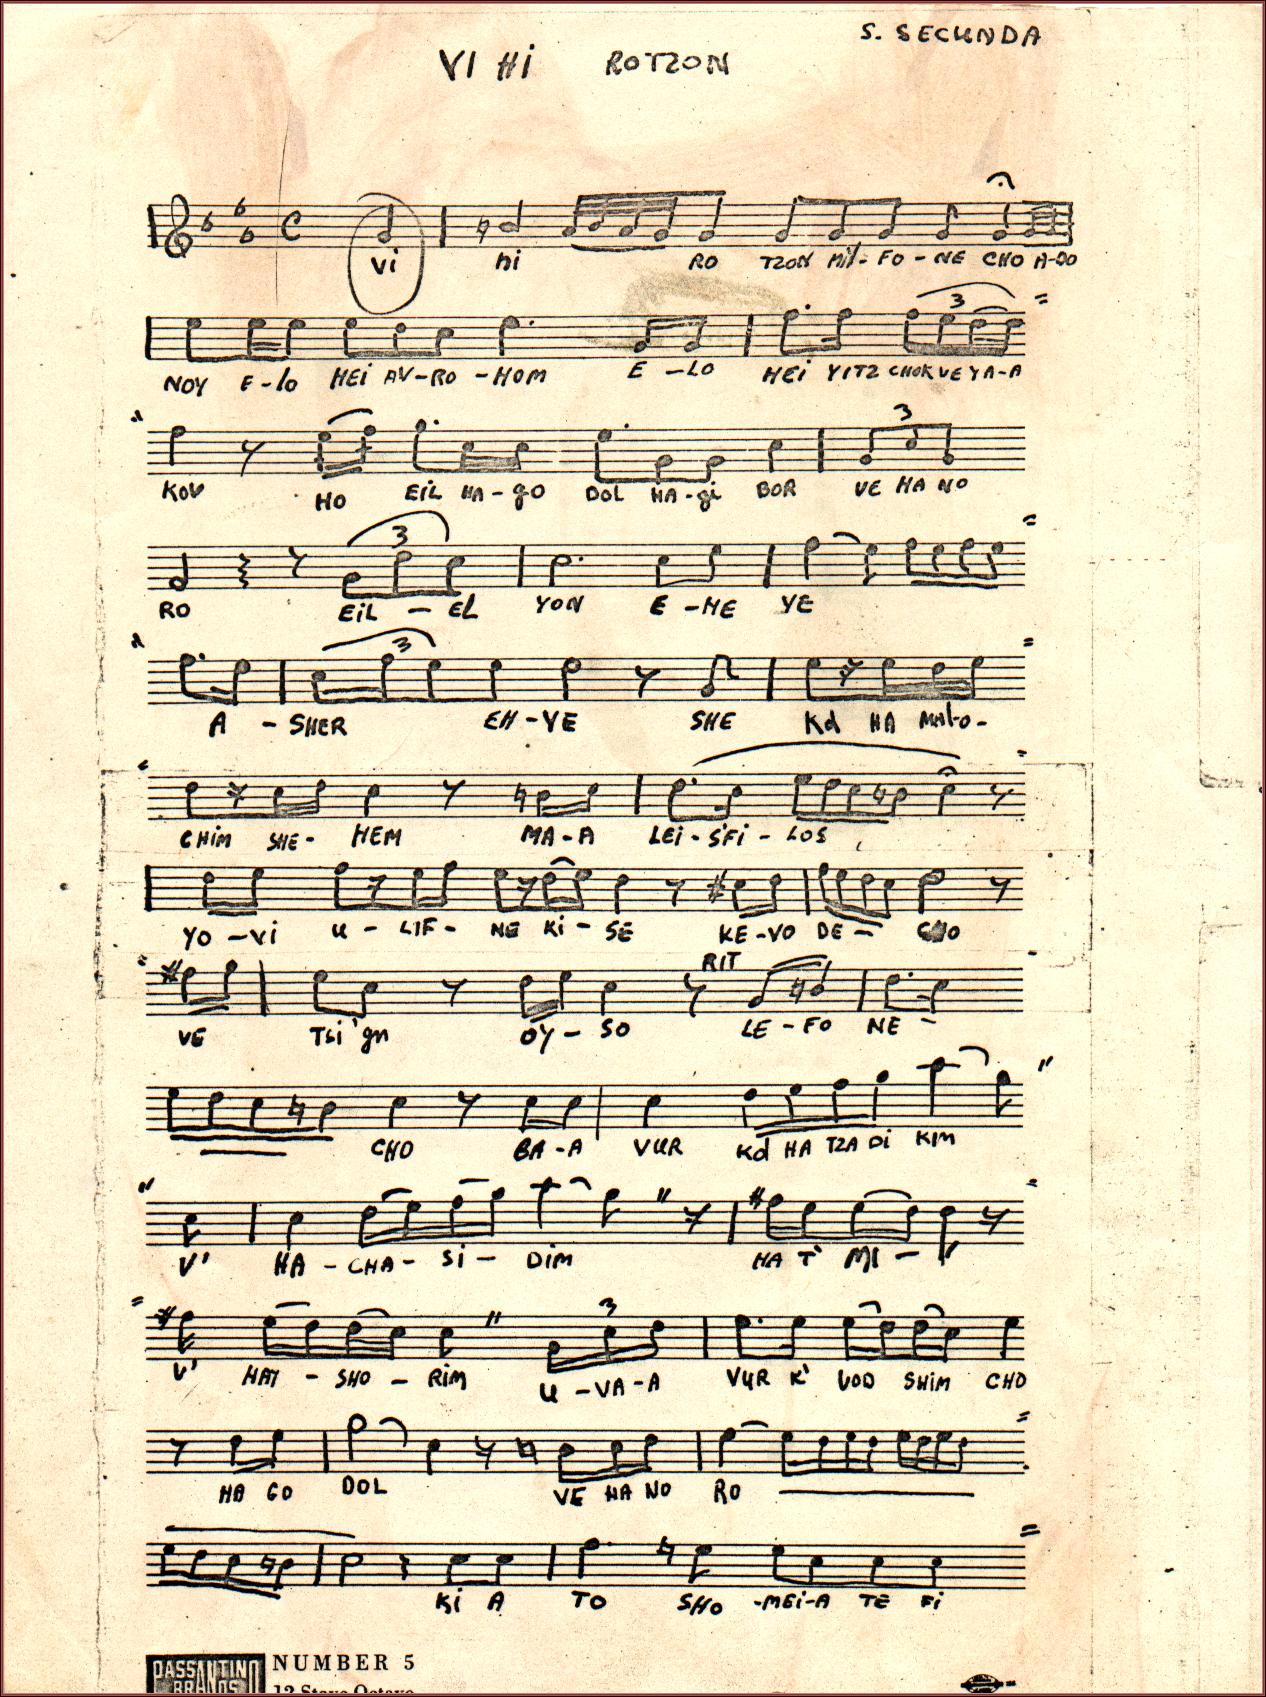 S. SECUNDA
VI HI ROTZON
Vi hi RO TZON Mil- FO - NE CHO A-DO
NOY E-lo HEi AV-RO -HOM E -LO HEi YITZ CHOK VE YA-A
KOV HO EIL HA-go DOL HA-gi BOR VE HA NO
RO EiL - EL YON E-HE YE
A - SHER EH-YE SHE Kol HA Mal-o-
CHiM SHE- HEM MA-A LEi-S'Fi-LOS
YO -Vi U - LIF- NE Ki - SE KE-VO DE - CHO
RIT
VE Tsi'gn OY - SO LE-FO NE -
CHO BA-A VUR Kol HA TZA Di KIM
V' HA - CHA- Si - DiM HA T' MI -
V' HAY - SHO - RiM U -VA-A VUR K' VOD SHiM CHO
HA GO DOL VE HA NO RO
Ki A TO SHO -MEi-A TE Fi
PASSANTINO BRANDS NUMBER 5
12 Stave Octavo